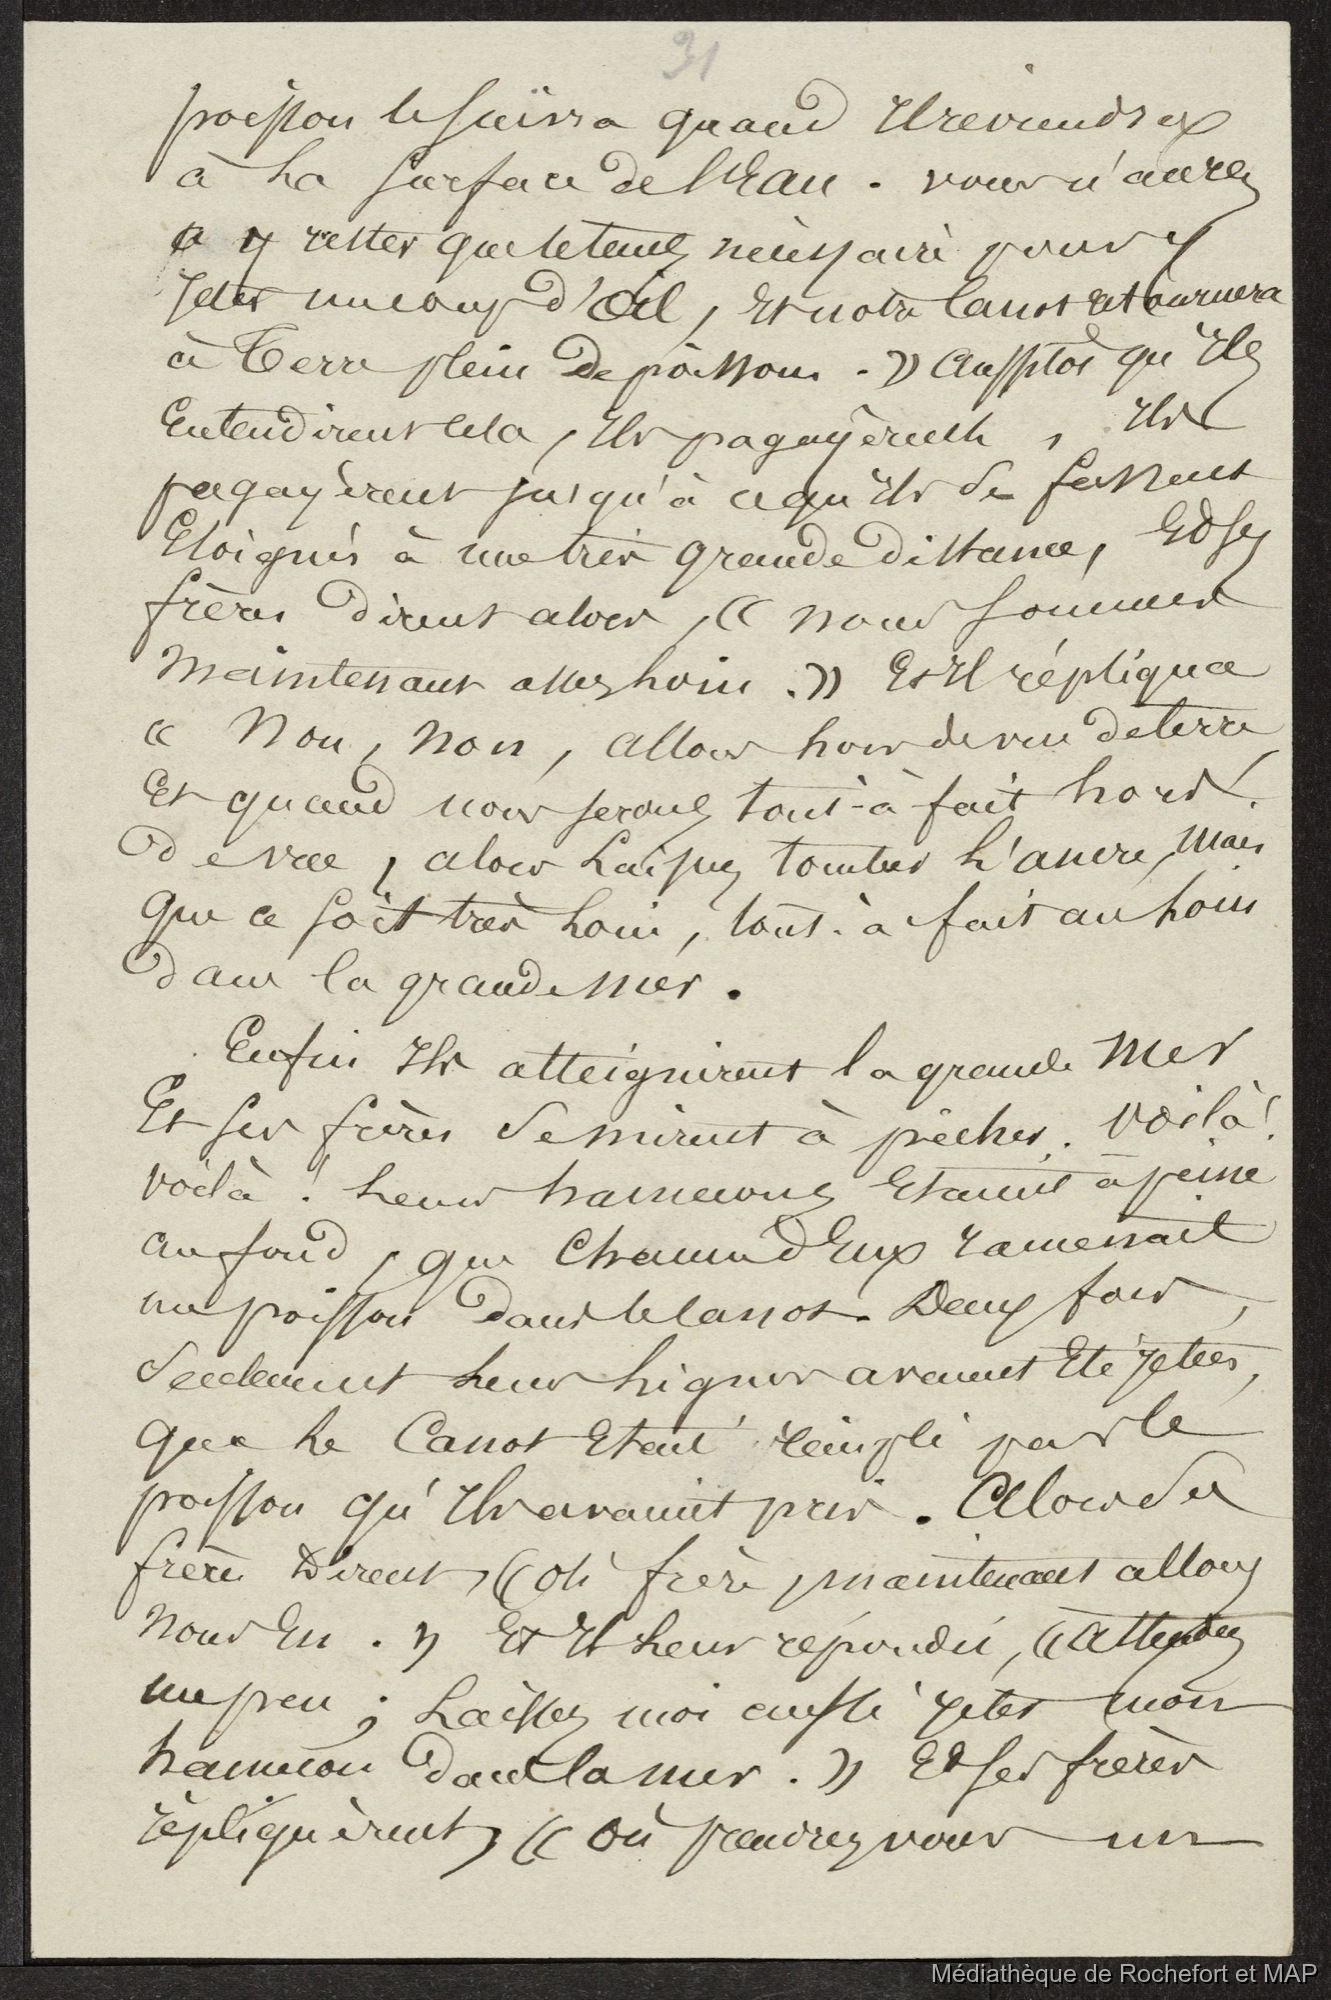 31
poisson le suivra quand Il reviendra
à la surface de l'Eau. vous n'aurez
à y rester que le temps nécessaire pour y
jeter un coup d'Œil, Et notre Canot retournera
à Terre plein de poissons. » Aussitôt qu'Ils
Entendirent cela, Ils pagayèrent, Ils
pagayèrent jusqu'à ce qu'Ils se fussent
Eloignés à une très grande distance, Et Ses
frères dirent alors, « nous sommes
maintenant assez loin. » Et Il répliqua
« Non, non, allons hors de vue de terre
Et quand nous serons tout-à fait hors
de vue, alors Laissez tomber l'ancre, mais
que ce soit très loin, tout-à fait au loin
dans la grande mer.
Enfin Ils atteignirent la grande mer
Et Ses frères se mirent à pêcher. Voilà!
voilà! Leurs hameçons Etaient à peine
au fond, que Chacun d'Eux ramenait
un poisson dans le Canot. Deux fois,
Seulement leurs lignes avaient Eté jetées,
que le Canot Etait rempli par le
poisson qu'Ils avaient pris. Alors Ses
frères Dirent, « oh frère, maintenant allons
nous En. » Et Il leur répondit, « Attendez
un peu; Laissez moi aussi jeter mon
hameçon dans la mer. » Et Ses frères
répliquèrent, « où prendrez vous un
Médiathèque de Rochefort et MAP